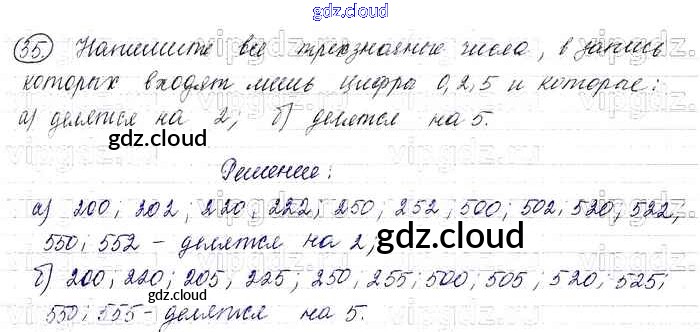 gdz.cloud
35. Напишите все трехзначные числа, в запись
которых входят лишь цифра 0,2,5 и которые:
а) делятся на 2; б) делятся на 5.
gdz.cloud
Решение:
а) 200; 202; 220; 222; 250; 252; 500; 502; 520; 522;
550; 552 - делятся на 2;
gdz.cloud
б) 200; 220; 205; 225; 250, 255; 500; 505; 520; 525;
550; 555 - делятся на 5.
gdz.cloud